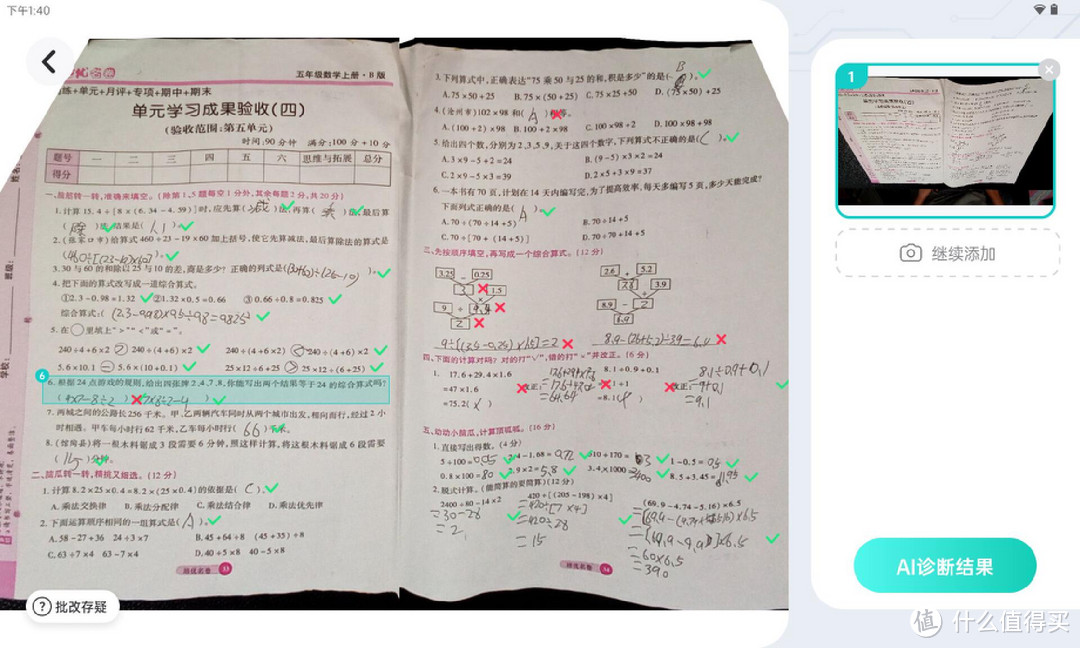 下午1:40
五年级数学上册·B版
练+单元+月评+专项+期中+期末
单元学习成果验收(四)
(验收范围:第五单元)
时间:90分钟 满分:100分+10分
题号 一 二 三 四 五 六 思维与拓展 总分
得分
一、脑筋转一转,准确来填空。(除第1、5题每空1分外,其余每题2分,共20分)
1.计算15.4÷[8×(6.34-4.59)]时,应先算(减)法,再算(乘)法,最后算
(除)法,结果是(1.1)。
2.(张家口市)给算式460÷23-19×60加上括号,使它先算减法,最后算除法的算式是
3.30与60的和除以25与10的差,商是多少?正确的列式是(
4.把下面的算式改写成一道综合算式。
①2.3-0.98=1.32 ②1.32×0.5=0.66 ③0.66÷0.8=0.825
综合算式:(
5.在○里填上“>”“<”或“=”。
240÷4+6×2 > 240÷(4+6)×2 240÷(4+6×2) < 240÷(4+6)×2
5.6×10.1 = 5.6×(10+0.1) 25×12÷6+25 > 25×12÷(6+25)
6
6.根据24点游戏的规则,给出四张牌2、4、7、8,你能写出两个结果等于24的综合算式吗?
(4×7-8÷2) 7×8÷2-4
7.两城之间的公路长256千米。甲、乙两辆汽车同时从两个城市出发,相向而行,经过2小
时相遇。甲车每小时行62千米,乙车每小时行(66)千米。
8.(馆陶县)将一根木料锯成3段需要6分钟,照这样计算,将这根木料锯成6段需要
(15)分钟。
二、脑瓜转一转,精挑又细选。(12分)
1.计算8.2×25×0.4=8.2×(25×0.4)的依据是(C)。
A.乘法交换律 B.乘法分配律 C.乘法结合律 D.乘法优先律
2.下面运算顺序相同的一组算式是(A)。
A.58-27+36 24÷3×7 B.45+64÷8 (45+35)÷8
C.63÷7×4 63-7×4 D.40+5×8 40-5×8
培优名卷 33
3.下列算式中,正确表达“75乘50与25的和,积是多少”的是(B)。
A.75×50+25 B.75×(50+25) C.75×25+50 D.(75×50)+25
4.(沧州市)102×98和(A)相等。
A.(100+2)×98 B.100+2×98 C.100×98+2 D.100×98+98
5.给出四个数,分别为2、3、5、9,关于这四个数字,下列算式不正确的是(C)。
A.3×9-5+2=24 B.(9-5)×3×2=24
C.2×9-5×3=39 D.2×5+3×9=37
6.一本书有70页,计划在14天内编写完,为了提高效率,每天多编写5页,多少天能完成?
下面列式正确的是(A)。
A.70÷(70÷14+5) B.70÷14+5
C.70÷[70÷(14+5)] D.70÷70÷14+5
三、先按顺序填空,再写成一个综合算式。(12分)
3.25 - 0.25
3 × 1.5
9 ÷ 4.4
2
2.6 + 5.2
7.8 ÷ 3.9
8.9 - 2
6.9
9÷[(3.25-0.25)×1.5]=2
8.9-(2.6+5.2)÷3.9=6.9
四、下面的计算对吗?对的打“√”,错的打“×”并改正。(6分)
1. 17.6+29.4×1.6
=47×1.6
=75.2(×)
改正:
8.1÷0.9+0.1
=8.1÷1
=8.1(
改正:
8.1÷0.9+0.1
=9+0.1
=9.1
五、动动小脑瓜,计算顶呱呱。(16分)
1.直接写出得数。(4分)
5÷100=0.05 2.4-1.68=0.72 510÷170=3 1-0.5=0.5
0.8×100=80 2.9×2=5.8 3.4×1000=3400 8.5+3.45=11.95
2.脱式计算。(能简算的要简算)(12分)
2400÷80-14×2
=30-28
=2
420÷[(205-198)×4]
=420÷[7×4]
=420÷28
=15
(69.9-4.74-5.16)×6.5
=[69.9-(4.74+5.16)]×6.5
=[69.9-9.9]×6.5
=60×6.5
=390
培优名卷 34
批改存疑
1
继续添加
AI诊断结果
值 什么值得买